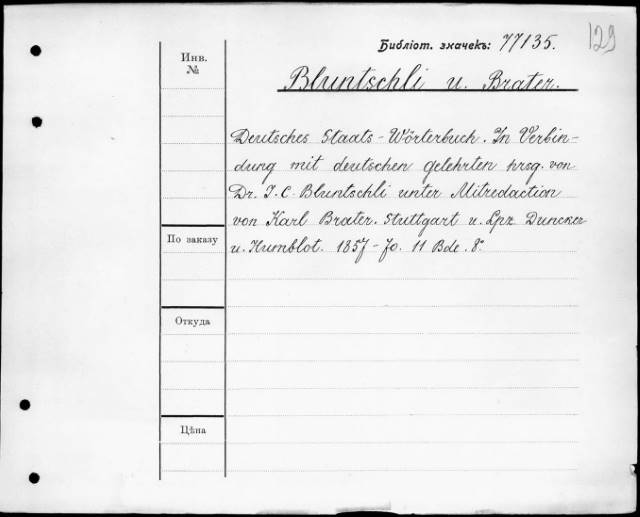 129
Библіот. значекъ: 77135.
Инв.
№
Bluntschli u. Brater.
Deutsches Staats-Wörterbuch. In Verbin-
dung mit deutschen gelehrten hrsg. von
Dr. J. C. Bluntschli unter Mitredaction
von Karl Brater. Stuttgart u. Lpz. Duncker
u. Humblot. 1857-70. 11 Bde. 8°.
По заказу
Откуда
Цѣна